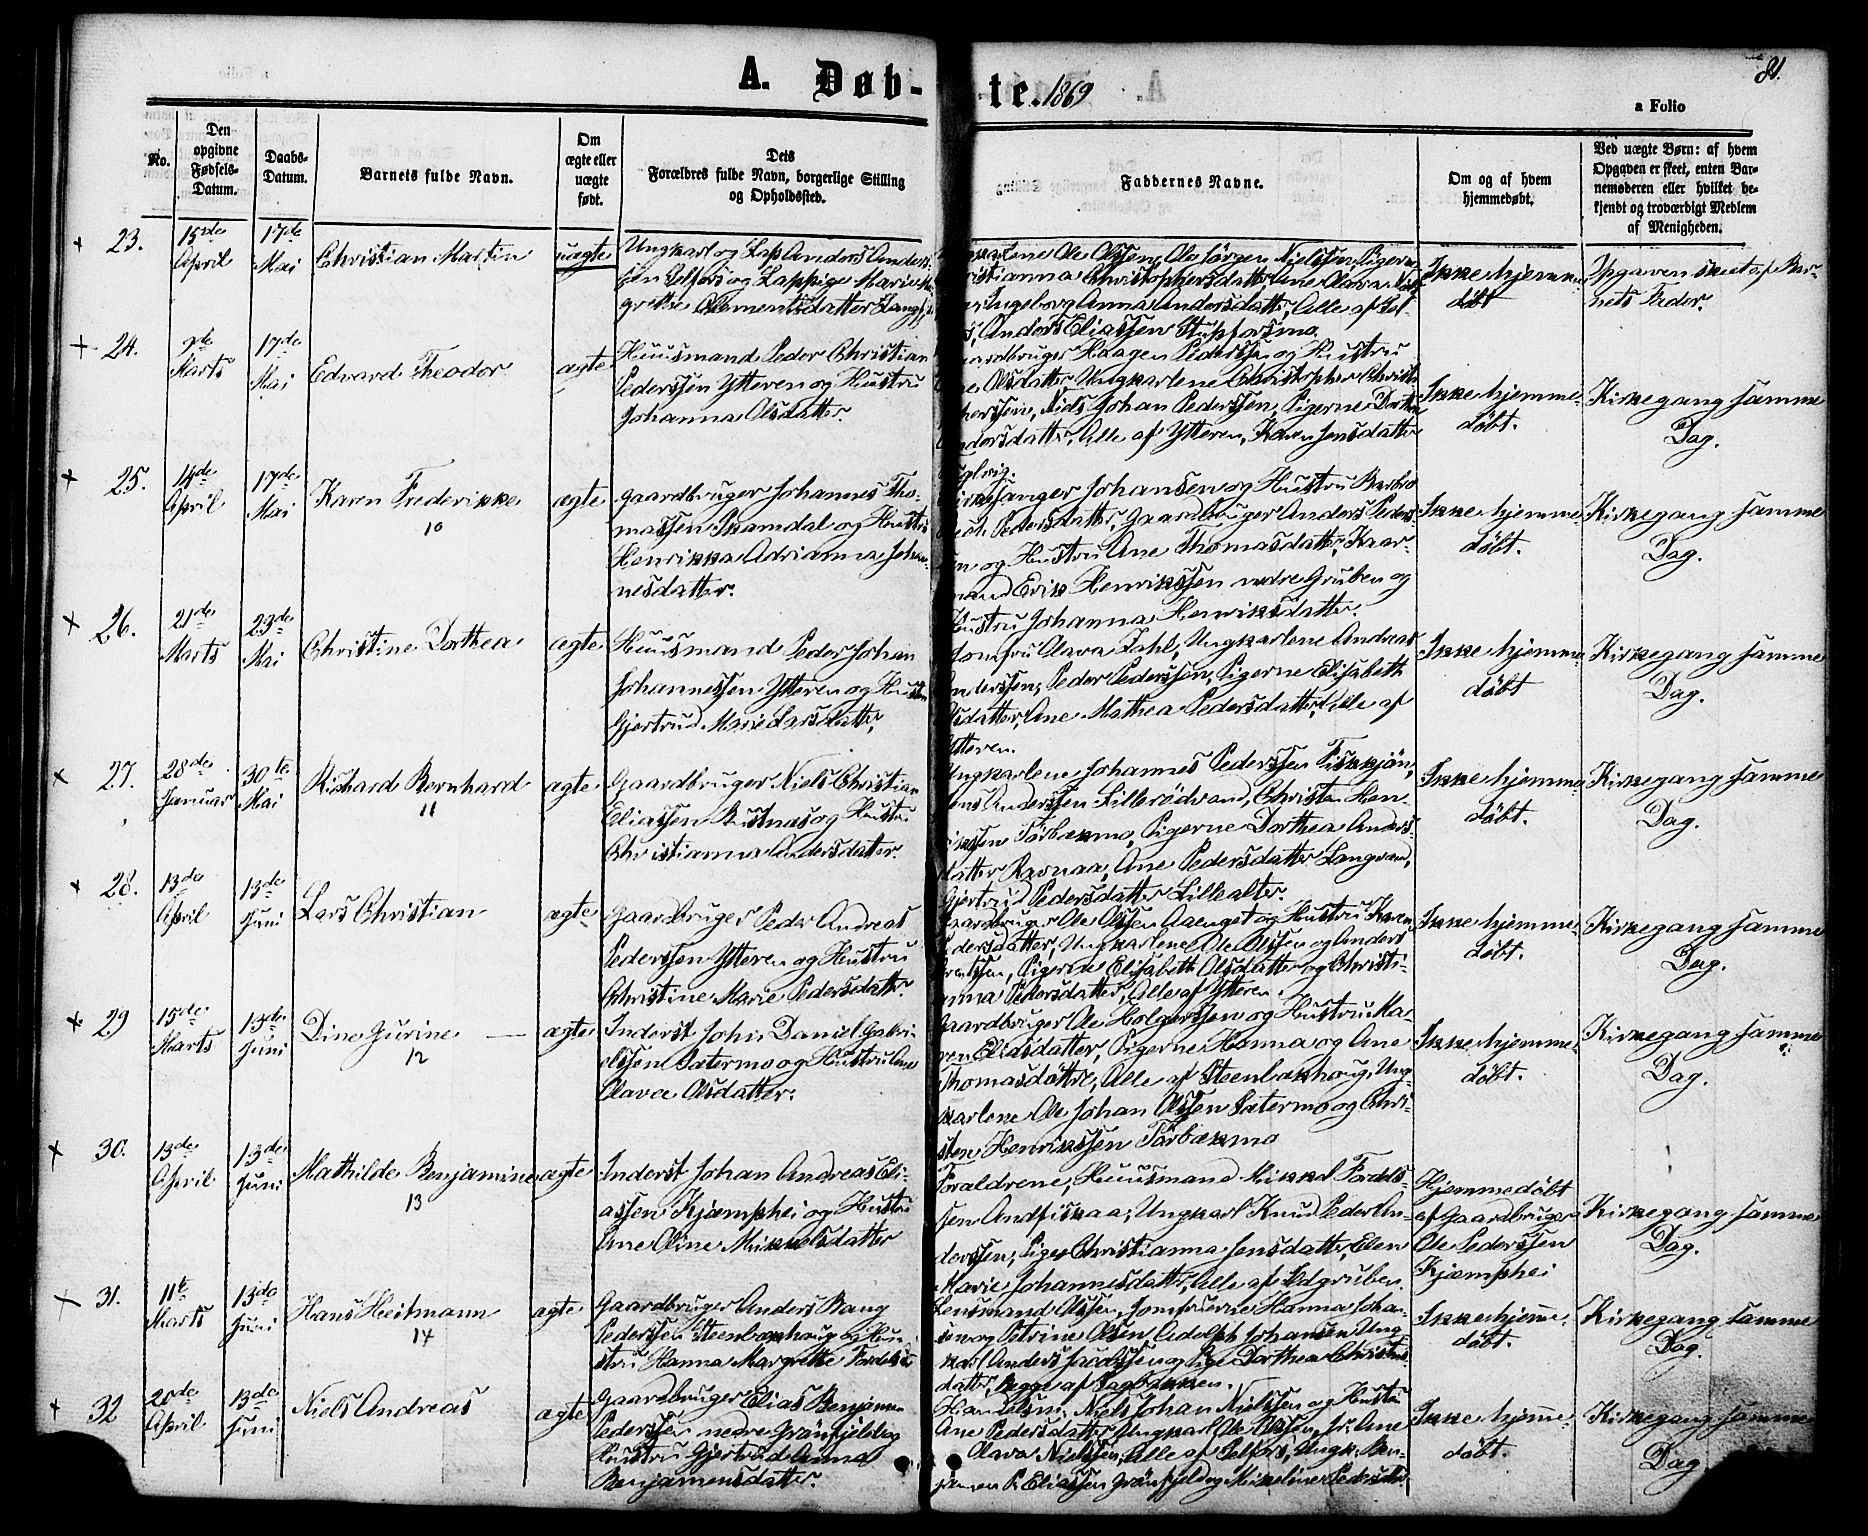 A. Døb-te. 1869
81.
a Folio
No.
Den opgivne Fødsels-Datum.
Daabs-Datum.
Barnets fulde Navn.
Om ægte eller uægte født.
Dets Forældres fulde Navn, borgerlige Stilling og Opholdssted.
Faddernes Navne.
Om og af hvem hjemmedøbt.
Ved uægte Børn: af hvem Opgaven er skeet, enten Barnemoderen eller hvilket bekjendt og troværdigt Medlem af Menigheden.
23.
15de April
17de Mai
Christian Martin
uægte
Ungkarl og Lap Anders Anders-
sen Selfors og Lappige Marie Ma-
grethe Clementsdatter
Ole Olssen, Ole Jørgen Nielssen, Pigerne
Christophersdatter, Ane Olava
Ingeborg Anna Andersdatter, Alle af Sel-
Anders Eliassen Stupforsmo.
Ikke hjemme-
døbt
Opgaven skeet af Bar-
nets Fader.
24.
Marts
17de Mai
Edvard Theodor
ægte
Huusmand Peder Christian
Pederssen Ytteren og Hustru
Johanna Olsdatter.
Haagen Pederssen og Hustru
Olsdatter, Ungkarlene Christopher
Niels Johan Pederssen, Pigerne
Andersdatter, Alle af Ytteren, Karen Jensdatter
Ikke hjemme-
døbt.
Kirkegang samme
Dag.
25.
14de April
17de Mai
Karen Frederikke
10
ægte
Gaardbruger Johannes Tho-
massen Skamdal og Hustru
Henrikka Adrianna Johan-
nesdatter.
Kirkesanger Johansen og Hustru
Pedersdatter, Gaardbruger Anders Peders-
og Hustru Ane Thomasdatter, Kaar-
mand Erik Henrikssen nedre Gruben og
Hustru Johanna Henriksdatter.
Ikke hjemme-
døbt.
Kirkegang samme
Dag.
26.
21de Marts
23de Mai
Christine Dorthea
ægte
Huusmand Peder Johan
Johannessen Ytteren og Hustru
Gjertrud Marie Larsdatter,
Jomfru Olava Dahl, Ungkarlene Andreas
Anderssen, Peder Pederssen, Pigerne Elisabeth
Olsdatter, Ane Mathea Pedersdatter, Alle af
Ytteren.
Ikke hjemme-
døbt
Kirkegang samme
Dag.
27.
28de Januar
30te Mai
Richard Bernhard
11
ægte
Gaardbruger Niels Christian
Eliassen Bustnæs og Hustru
Christianna Andersdatter.
Ungkarlene Johannes Pederssen
Jens Anderssen Lillerødvand, Christen Hen-
rikssen Tørbækmo, Pigerne Dorthea Anders-
datter Ravnaa, Ane Pedersdatter Langvand,
Gjertrud Pedersdatter Lillealter.
Ikke hjemme-
døbt.
Kirkegang samme
Dag.
28.
13de April
13de Juni
Lars Christian
ægte
Gaardbruger Peder Andreas
Pederssen Ytteren og Hustru
Christine Marie Pedersdatter.
Gaardbruger Ole Olssen Aaenget og Hustru Karen
Pedersdatter, Ungkarlene Ole Olssen og Anders
Pigerne Elisabeth Olsdatter og Christi-
anna Pedersdatter, Alle af Ytteren.
Ikke hjemme-
døbt.
Kirkegang samme
Dag.
29
15de Marts
13de Juni
Dina Jurine
12
ægte
Inderst John Daniel Gabri-
elssen Sætermo og Hustru Ane
Olava Olsdatter.
Gaardbruger Ole Holgerssen og Hustru Ma-
ren Eliasdatter, Pigerne Hanna og Ane
Thomasdøttre, Alle af Steenbækhoug, Ung-
karlene Ole Johan Olssen Sætermo og Chri-
sten Henrikssen Tørbækmo
Ikke hjemme-
døbt.
Kirkegang samme
Dag.
30.
13de April
13de Juni
Mathilde Benjamine
13
ægte
Inderst Johan Andreas Eli-
assen Kjæmphei og Hustru
Ane Oline Mikkelsdatter
Forældrene, Huusmand Mikkel Fordels-
sen Andfiskaa, Ungkarl Knud Peder An-
derssen, Pige Christianna Jensdatter, Elen
Marie Johannesdatter, Alle af
Hjemmedøbt
af Gaardbruger
Ole Pederssen
Kjæmphei
Kirkegang samme
Dag.
31.
11te Marts
13de Juni
Hans Heitmann
14
ægte
Gaardbruger Anders Bang
Pederssen Steenbækhoug og Hu-
stru Hanna Margrethe
Lensmand Olssen, Jomfruerne Hanna Johan-
sen og Petrine Olsen, Adolph Johansen, Ung-
karl Anders og Pige Dorthea
datter, begge af
Ikke hjemme-
døbt.
Kirkegang samme
Dag.
32
20de April
13de Juni
Niels Andreas
ægte
Gaardbruger Elias Benjamin
Pederssen nedre Grønfjeld og
Hustru Gjertrud Anna
Benjamensdatter.
Niels Johan Nielssen og Hustru
Ane Pedersdatter, Ungkarl Ole Olssen, Ane
Olava Nielssen, Alle af Selfors, Ungk. Ben-
jamen P. Eliassen Grønfjeld og
Ikke hjemme-
døbt.
Kirkegang samme
Dag